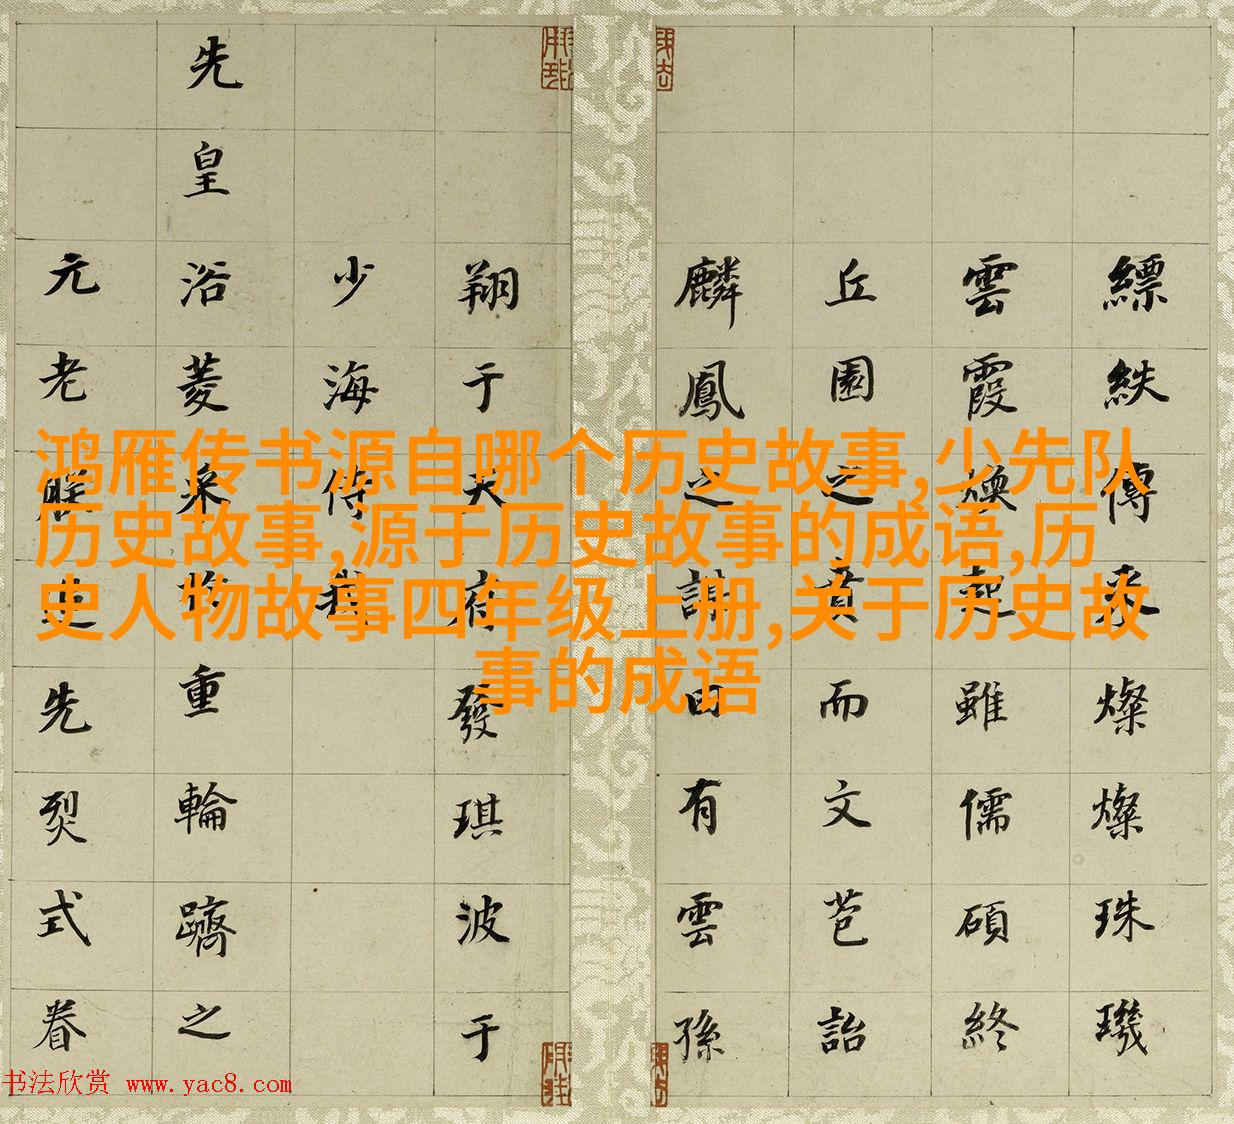 縹紩傳燦燦珠璣
雲霞煥起雖儒碩終
丘園之賁而文芑詒
麟鳳之曰有雲孫
翔于天府發琪波于
少海傳
先皇浴菱來重輪躋之
元老先烈式眷
鸿雁传书源自哪个历史故事,少先队
历史故事,源于历史故事的成语,历
史人物故事四年级上册,关于历史故
事的成语
书法欣赏 www.yac8.com